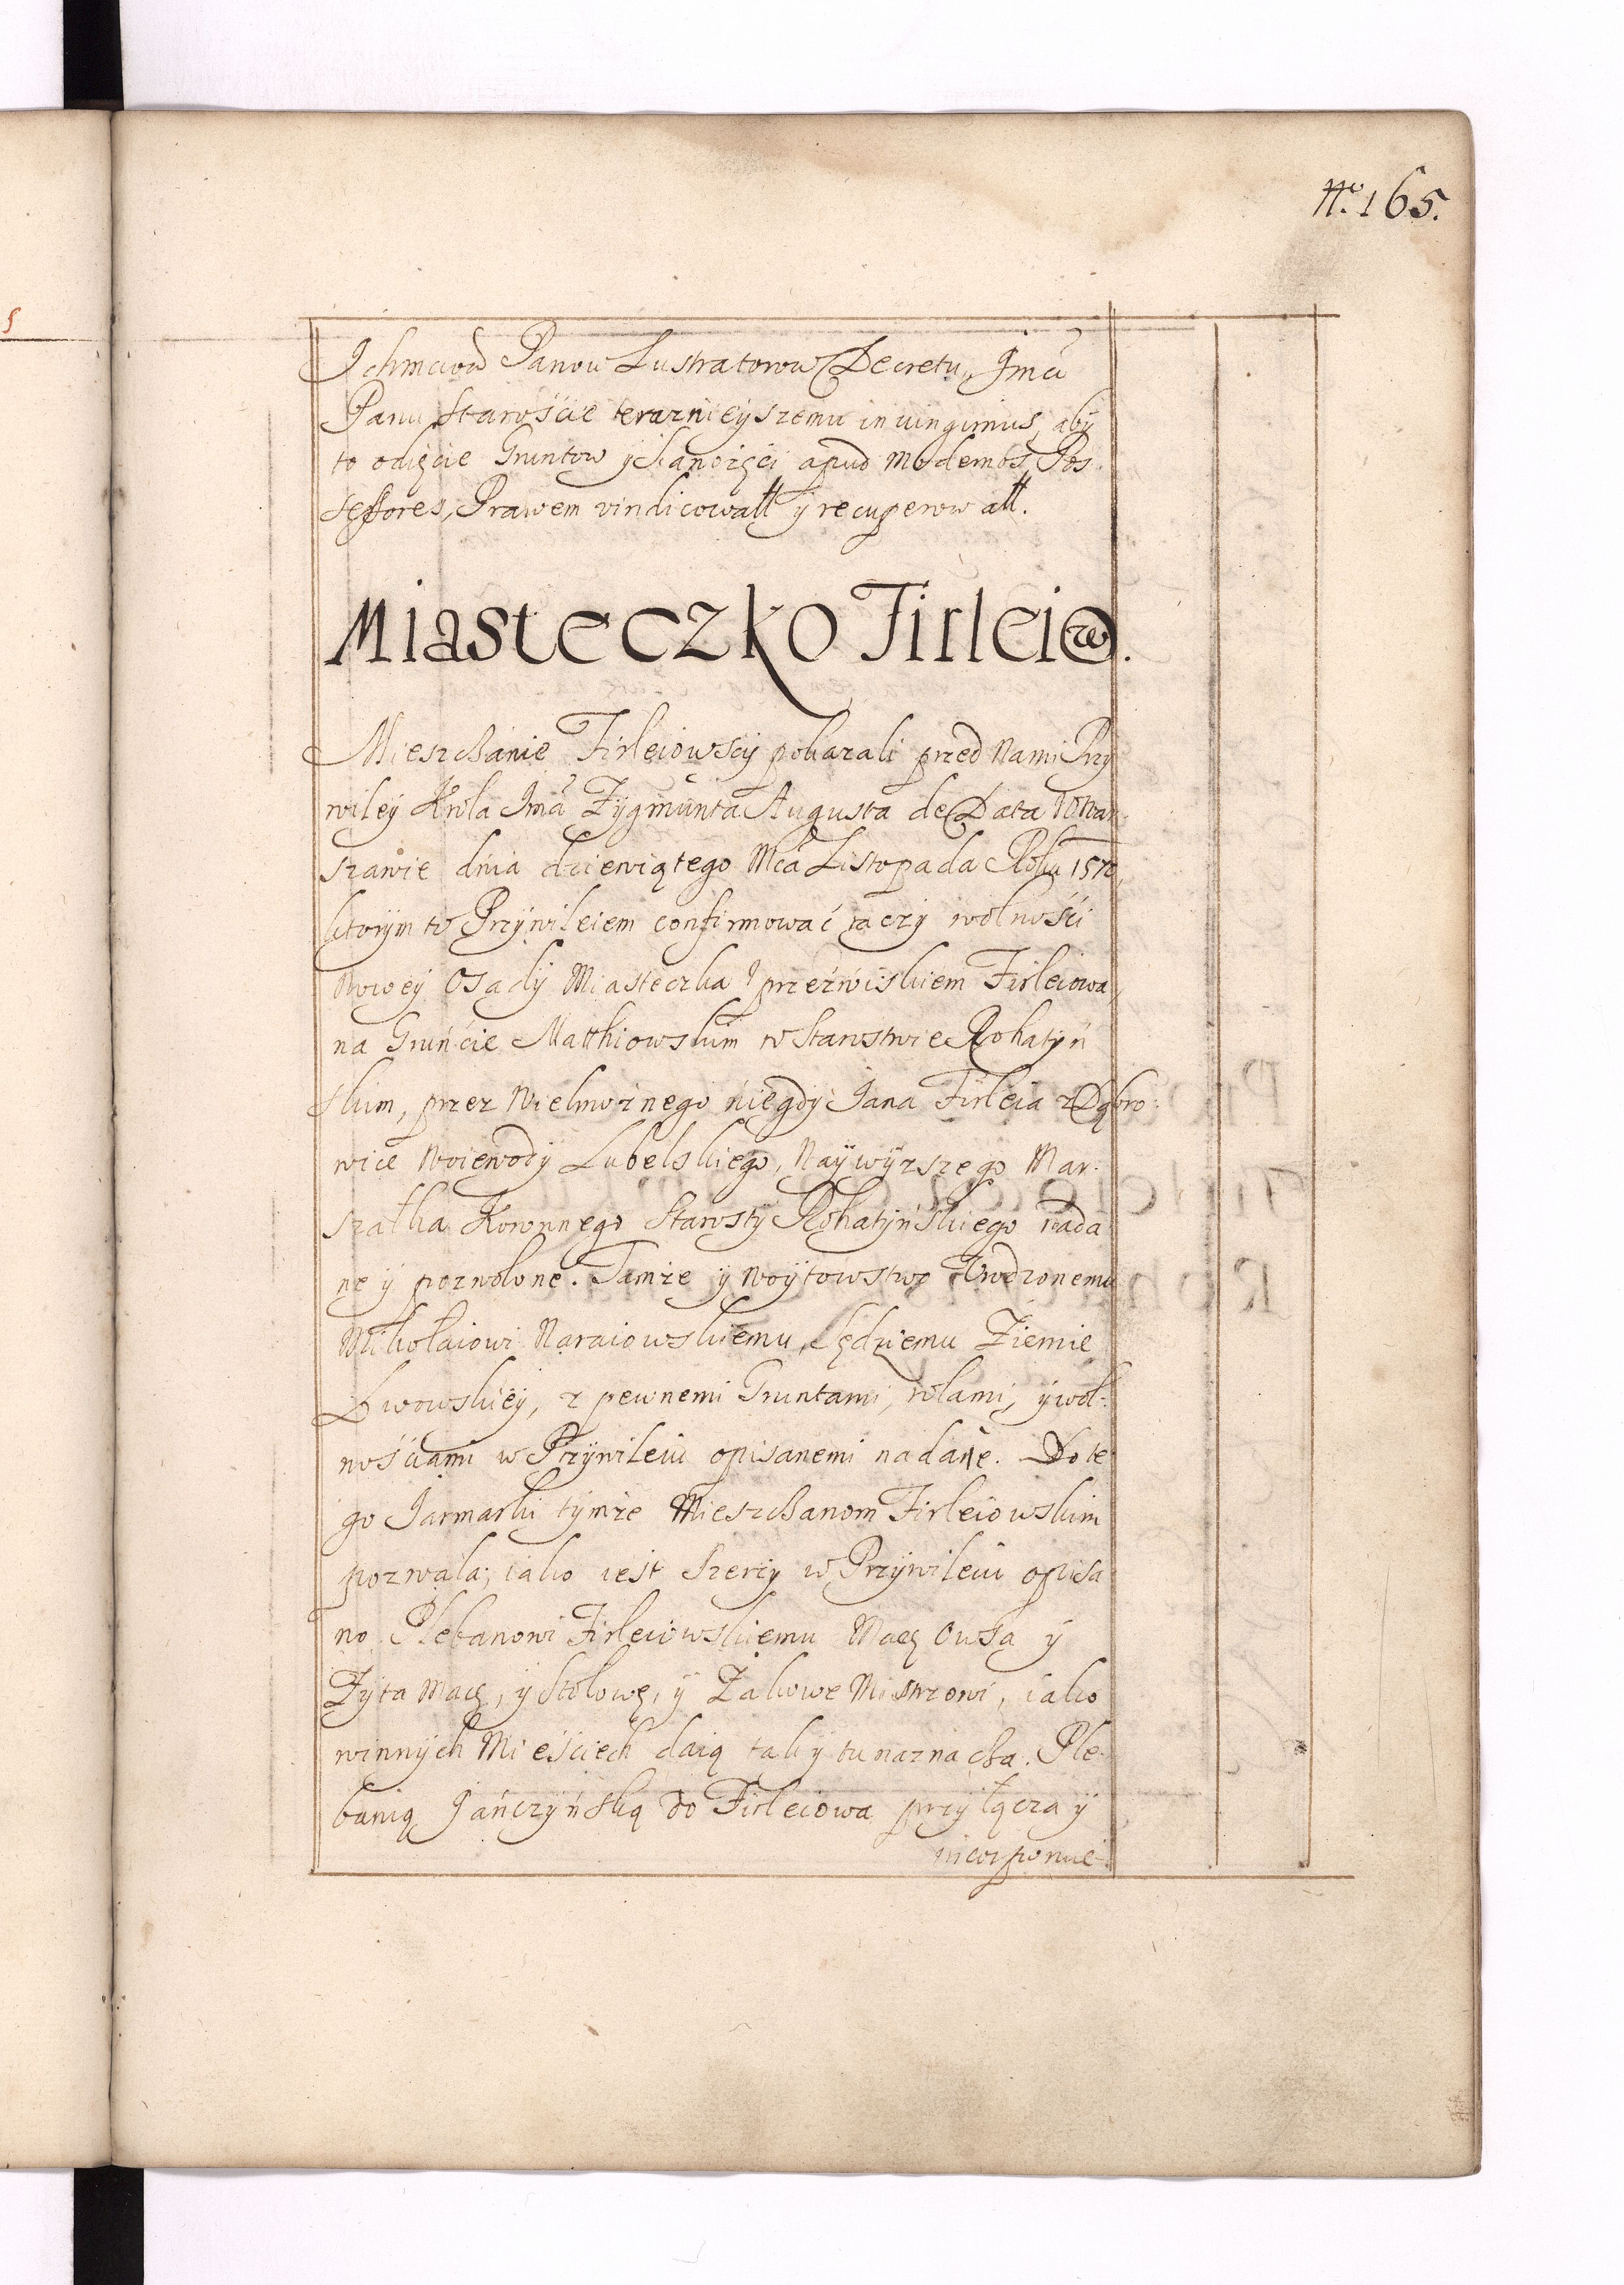 No. 165.
Ichmciow Panow Lustratorow Decretu, Jmci
Panu Staroscie teraznieyszemu iniungimus, aby
to odięcie Gruntow y apud modernos Pos
sessores, Prawem vindicowałł y recuperowałł.
Miasteczko Firleiow.
Mieszchanie Firleiowscy pokazali przed nami Przy
wiley Krola Jmci Zygmunta Augusta de Data w War:
szawie dnia dziewiątego Mca Listopada Roku 1570,
ktorym to Przywileiem confirmować raczy wolnośći
nowey Osady Miasteczka przezwiskiem Firleiowa,
na Gruńcie Matthiowskim w Starostwie Rohatyń
skim, przez Wielmożnego niegdy Jana Firleia z Dąbro:
wice Woiewody Lubelskiego, Naywyższego Mar:
szałka Koronnego Starosty Rohatyńskiego nada
ne y pozwolone. Tamże y Woytowstwo Urodzonemu
Mikołaiowi Naraiowskiemu, Sędziemu Ziemie
Lwowskiey, z pewnemi Gruntami, rolami, y wol:
nośćiami w Przywileiu opisanemi nadaie. Do te
go Jarmarki tymże Mieszchanom Firleiowskim
pozwala; iako iest szerzy w Przywileiu opisa
no. Plebanowi Firleiowskiemu Macę Owsa y
Zyta Macę, y Stołowe, y Zakowe Mistrzowi, iako
winnych Mieśćiech daią tak y tu naznacza. Ple
banią Jańczyńską do Firleiowa przyłącza y
incorporuie